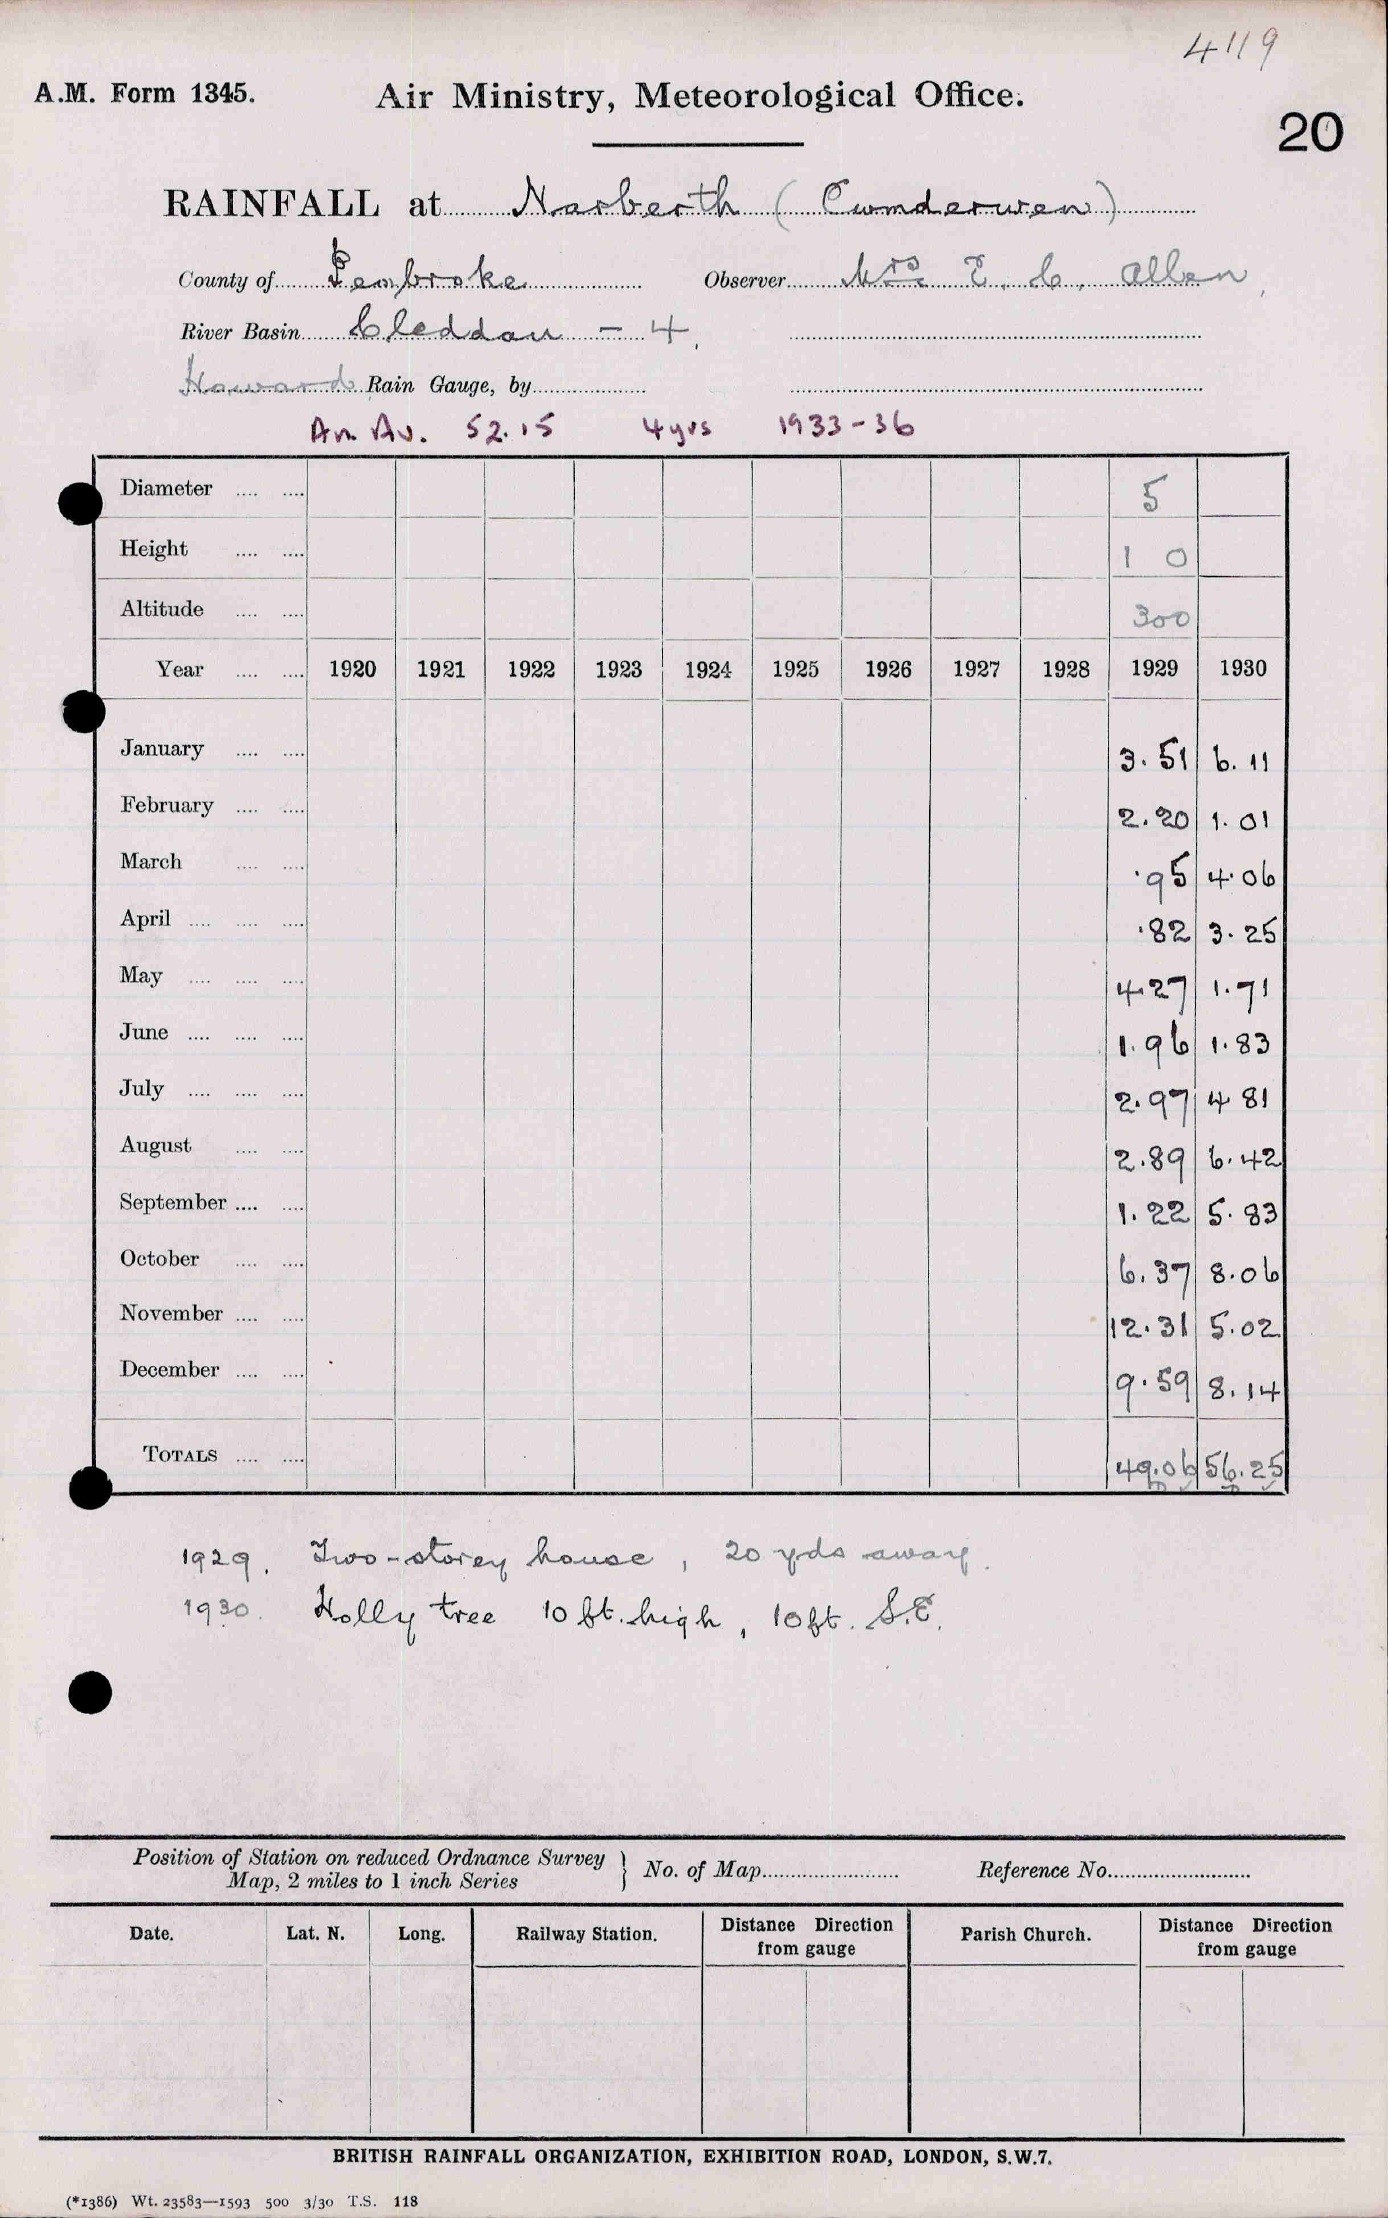 4119
A.M. Form 1345.
Air Ministry, Meteorological Office.
20
RAINFALL at Narberth (Cwmderwen)
County of Pembroke Observer Mrs E. C. Allen,
River Basin Cleddau - 4.
Howard Rain Gauge, by
An. Av. 52.15 4yrs 1933-36
Diameter .... .... 5
Height .... .... 1 0
Altitude .... .... 300
Year .... .... 1920 1921 1922 1923 1924 1925 1926 1927 1928 1929 1930
January .... .... 3.51 6.11
February .... .... 2.20 1.01
March .... .... .95 4.06
April .... .... .... .82 3.25
May .... .... .... 4.27 1.71
June .... .... .... 1.96 1.83
July .... .... .... 2.97 4 81
August .... .... 2.89 6.42
September .... .... 1.22 5.83
October .... .... 6.37 8.06
November .... .... 12.31 5.02
December .... .... 9.59 8.14
TOTALS .... .... 49.06 56.25
1929. Two-storey house, 20 yds away.
1930. Holly tree 10 ft. high, 10ft. S.E.
Position of Station on reduced Ordnance Survey
Map, 2 miles to 1 inch Series } No. of Map Reference No.
Date. Lat. N. Long. Railway Station. Distance Direction from gauge Parish Church. Distance Direction from gauge
BRITISH RAINFALL ORGANIZATION, EXHIBITION ROAD, LONDON, S.W.7.
(*1386) Wt. 23583—1593 500 3/30 T.S. 118